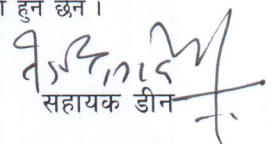 हुन छन ।
सहायक डीन